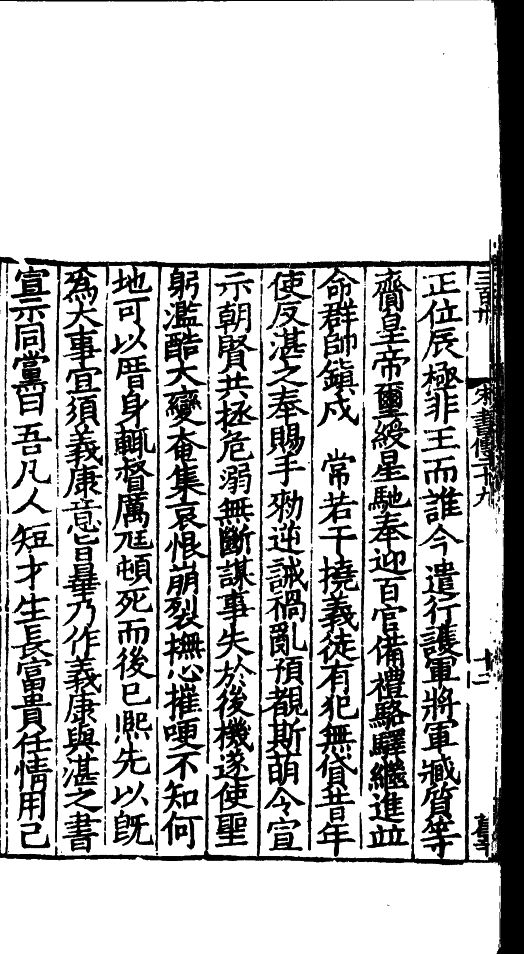 正位辰極非王而誰今遣行護軍將軍臧質等
齎皇帝璽綬星馳奉迎百官備禮駱驛繼進並
命群帥鎮戍　常若干撓義徒有犯無貸昔年
使反湛之奉賜手勑逆誡禍亂預覩斯萌令宣
示朝賢共拯危溺無斷謀事失於後機遂使聖
躬濫酷大變奄集哀恨崩裂撫心摧哽不知何
地可以厝身輒督厲尫頓死而後已熙先以旣
爲大事宜須義康意旨畢乃作義康與湛之書
宣示同黨曰吾凡人短才生長富貴任情用己
宋書傳二十九
十二